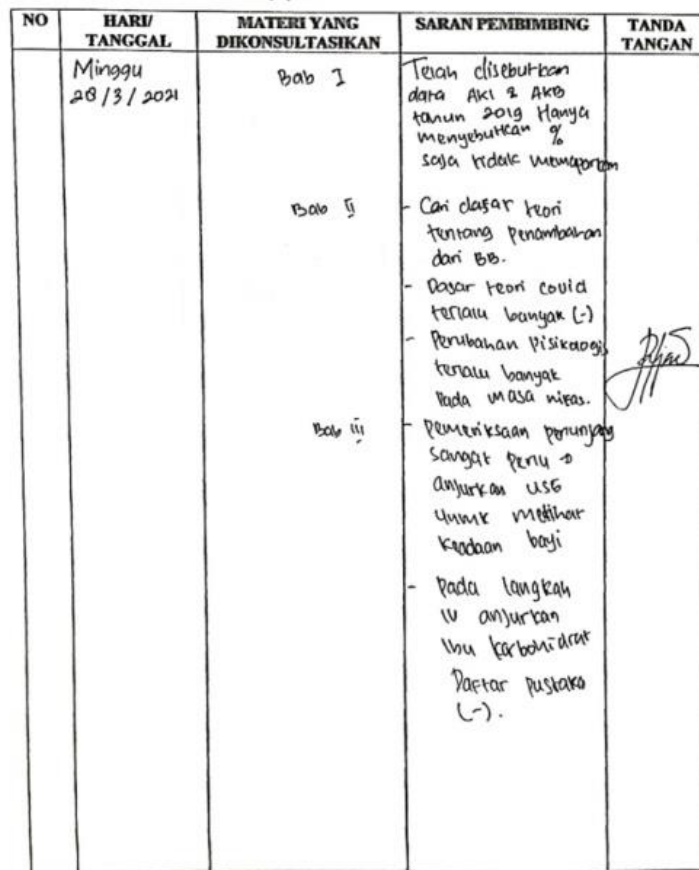 NO HARI/ TANGGAL MATERI YANG DIKONSULTASIKAN SARAN PEMBIMBING TANDA TANGAN
Minggu
28/3/2021
Bab I
Telah disebutkan
data AKI & AKB
tahun 2019 Hanya
menyebutkan %
saja tidak memaparkan
Bab II
- Cari dasar teori
tentang Penambahan
dari BB.
- Dasar teori covid
terlalu banyak (-)
- Perubahan Pisikologis
terlalu banyak
Pada masa nifas.
Bab III
- Pemeriksaan penunjang
sangat perlu →
anjurkan USG
untuk melihat
Keadaan bayi
- Pada langkah
IV anjurkan
Ibu karbohidrat
Daftar Pustaka
(-).